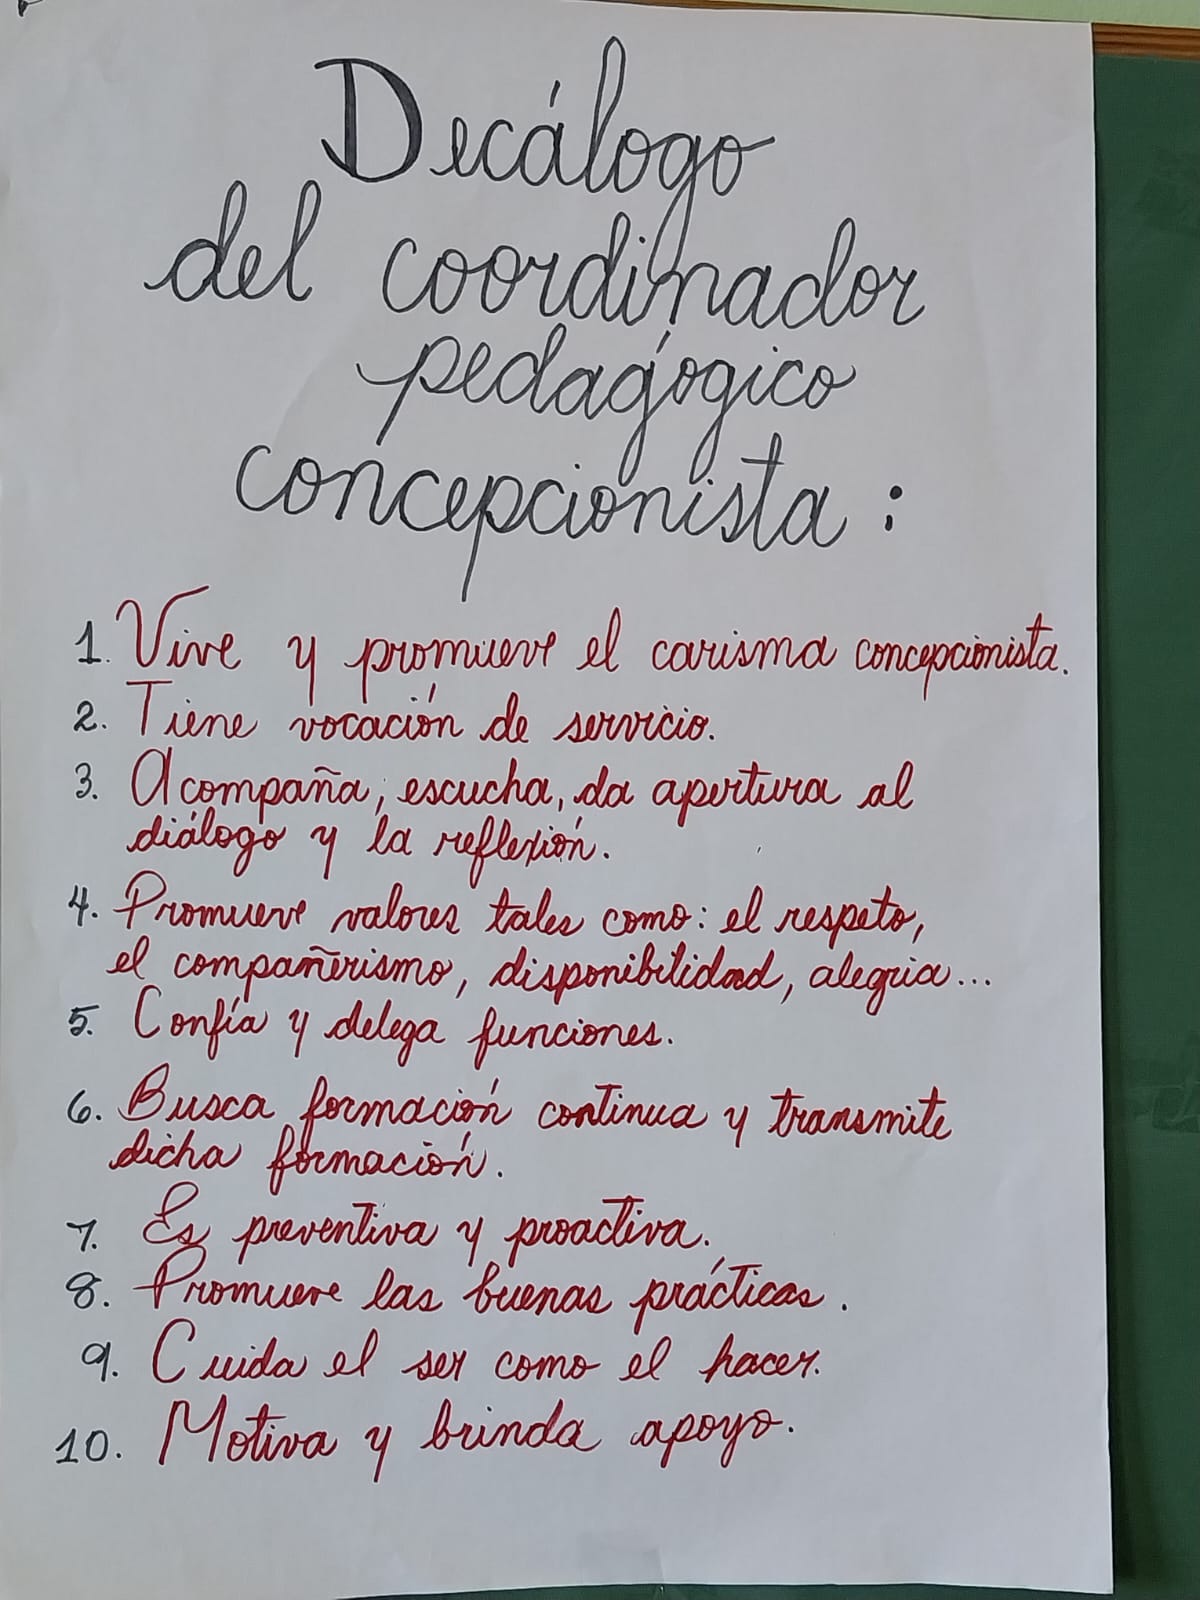 Decálogo
del coordinador
pedagógico
concepcionista:
1. Vive y promueve el carisma concepcionista.
2. Tiene vocación de servicio.
3. Acompaña, escucha, da apertura al
diálogo y la reflexión.
4. Promueve valores tales como: el respeto,
el compañerismo, disponibilidad, alegria...
5. Confía y delega funciones.
6. Busca formación continua y transmite
dicha formación.
7. Es preventiva y proactiva.
8. Promueve las buenas prácticas.
9. Cuida el ser como el hacer.
10. Motiva y brinda apoyo.